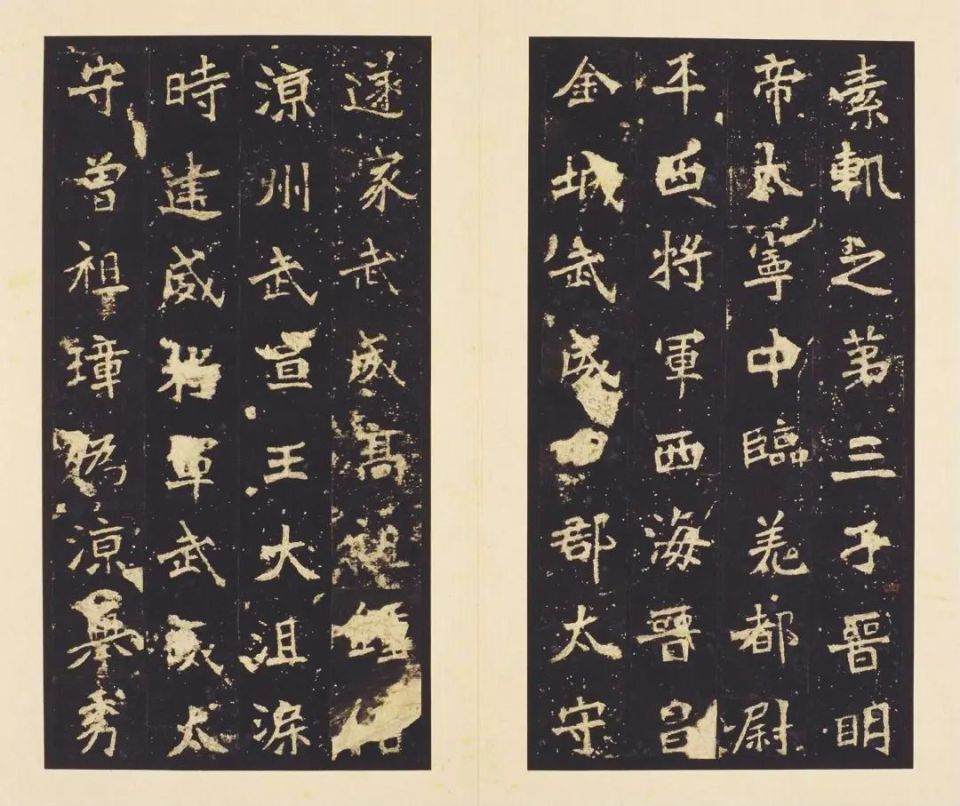 素軌之第三子晉明
帝太寧中臨羌都尉
平西將軍西海晉昌
金城武威四郡太守
遂家武威高祖
涼州武宣王大沮渠
時建威將軍武威太
守曾祖璋偽涼舉秀